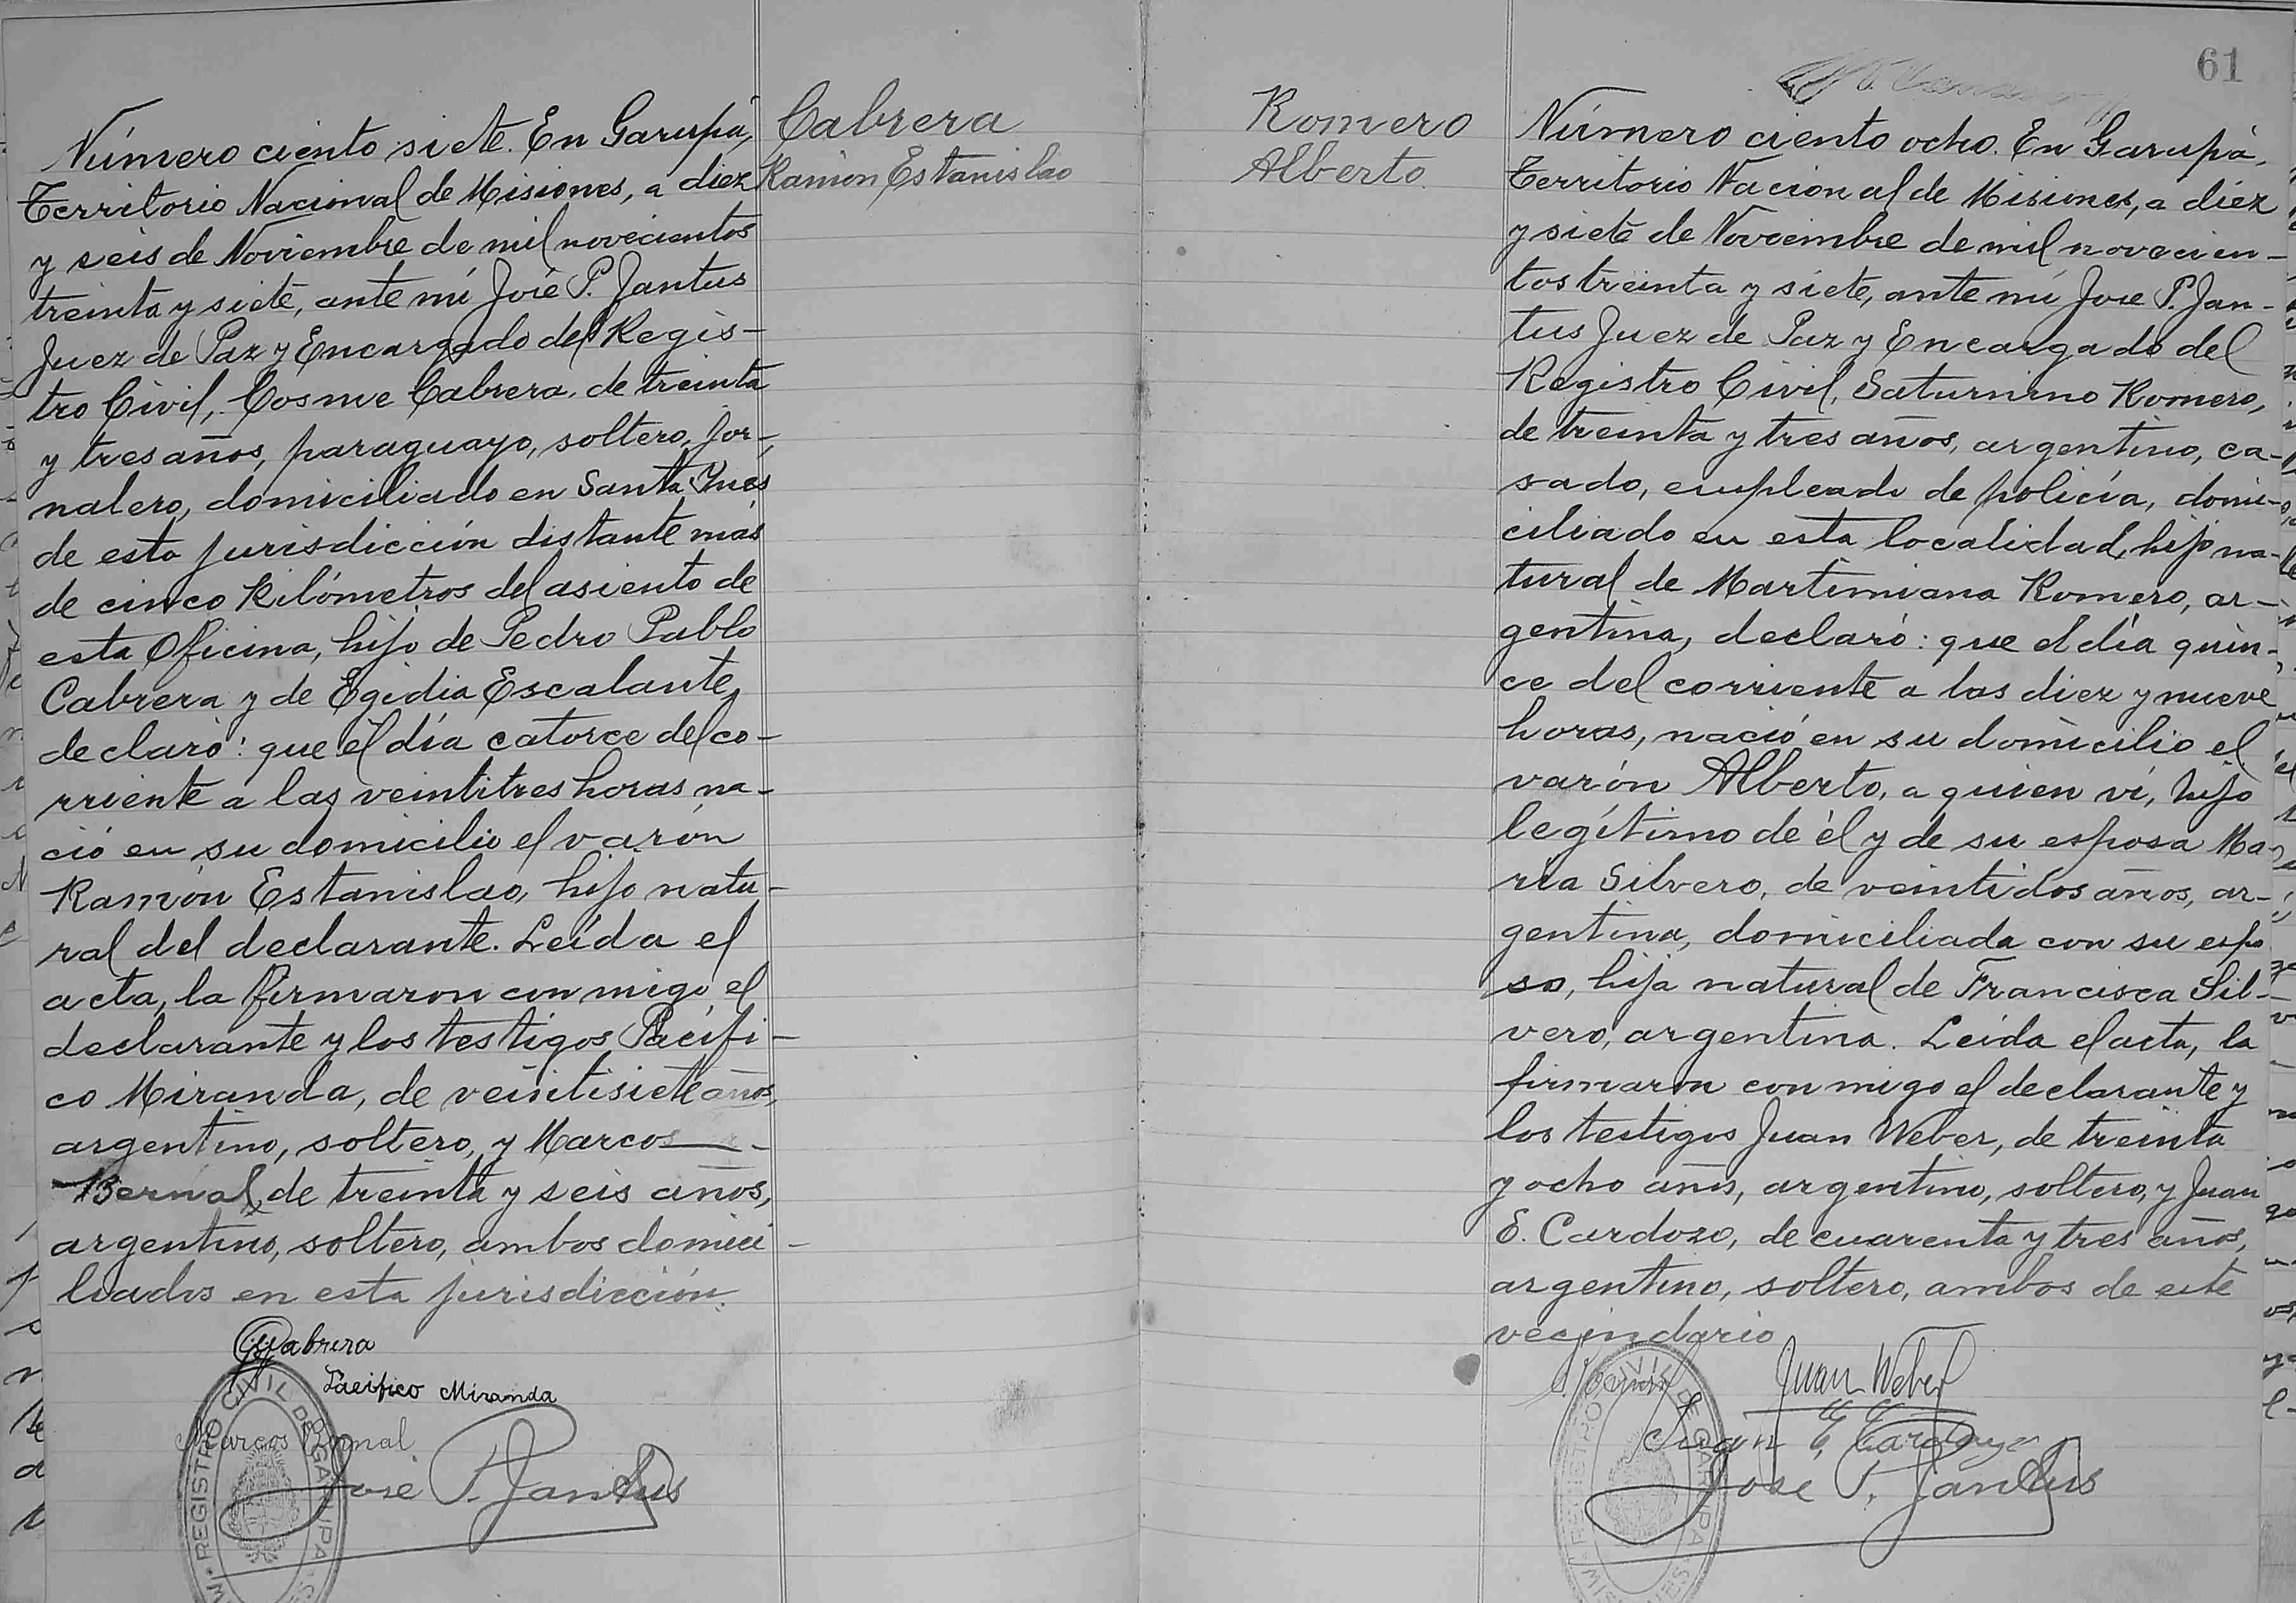 Número ciento siete. En Garupá,
Territorio Nacional de Misiones, a diez
y seis de Noviembre de mil novecientos
treinta y siete, ante mí José P. Jantus
Juez de Paz y Encargado del Regis-
tro Civil, Cosme Cabrera, de treinta
y tres años, paraguayo, soltero, jor-
nalero, domiciliado en Santa Inés
de esta jurisdicción distante más
de cinco Kilómetros del asiento de
esta Oficina, hijo de Pedro Pablo
Cabrera y de Egidia Escalante,
declaró: que el día catorce del co-
rriente a las veintitres horas na-
ció en su domicilio el varón
Ramón Estanislao, hijo natu-
ral del declarante. Leída el
acta, la firmaron conmigo el
declarante y los testigos Pacífi-
co Miranda, de veintisiete años,
argentino, soltero, y Marcos
Bernal, de treinta y seis años,
argentino, soltero, ambos domici-
liados en esta jurisdicción.
Cabrera
Pacifico Miranda
Marcos Bernal
José P. Jantus
REGISTRO CIVIL DE GARUPA
Cabrera
Ramón Estanislao
61
Romero
Alberto
Número ciento ocho. En Garupá,
Territorio Nacional de Misiones, a diez
y siete de Noviembre de mil novecien-
tos treinta y siete, ante mí José P. Jan-
tus Juez de Paz y Encargado del
Registro Civil, Saturnino Romero,
de treinta y tres años, argentino, ca-
sado, empleado de policía, domi-
ciliado en esta localidad, hijo na-
tural de Martimiana Romero, ar-
gentina, declaró: que el día quin-
ce del corriente a las diez y nueve
horas, nació en su domicilio el
varón Alberto, a quien ví, hijo
legítimo de él y de su esposa Ma-
ria Silvero, de veintidos años, ar-
gentina, domiciliada con su espo
so, hija natural de Francisca Sil-
vero, argentina. Leída el acta, la
firmaron conmigo el declarante y
los testigos Juan Weber, de treinta
y ocho años, argentino, soltero, y Juan
E. Cardozo, de cuarenta y tres años,
argentino, soltero, ambos de este
vecindario
Juan Weber
Juan E. Cardozo
José P. Jantus
REGISTRO CIVIL DE GARUPA